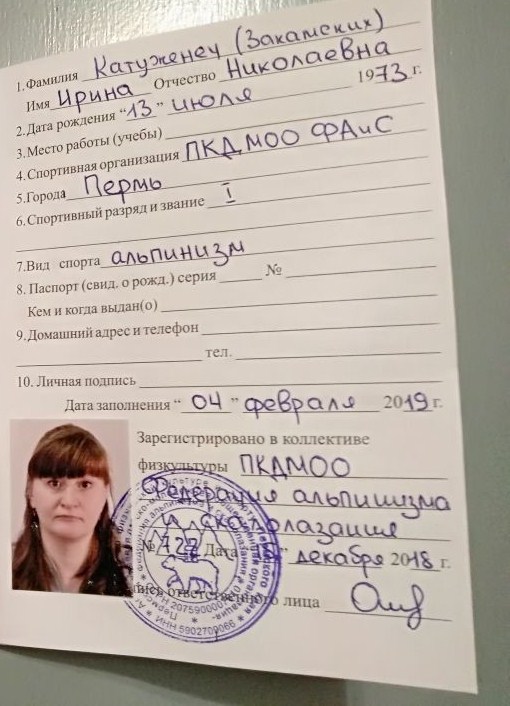 1.Фамилия Катуженец (Закамских)
Имя Ирина Отчество Николаевна
2.Дата рождения "13" июля 1973 г.
3.Место работы (учебы)
4.Спортивная организация ПКДМОО ФАиС
5.Города Пермь
6.Спортивный разряд и звание I
7.Вид спорта альпинизм
8. Паспорт (свид. о рожд.) серия №
Кем и когда выдан(о)
9.Домашний адрес и телефон
тел.
10. Личная подпись
Дата заполнения "04" февраля 2019 г.
Зарегистрировано в коллективе
физкультуры ПКДМОО
Федерация альпинизма
и скалолазания
№ 727 Дата декабря 2018 г.
ответственного лица
ИНН 5902709066